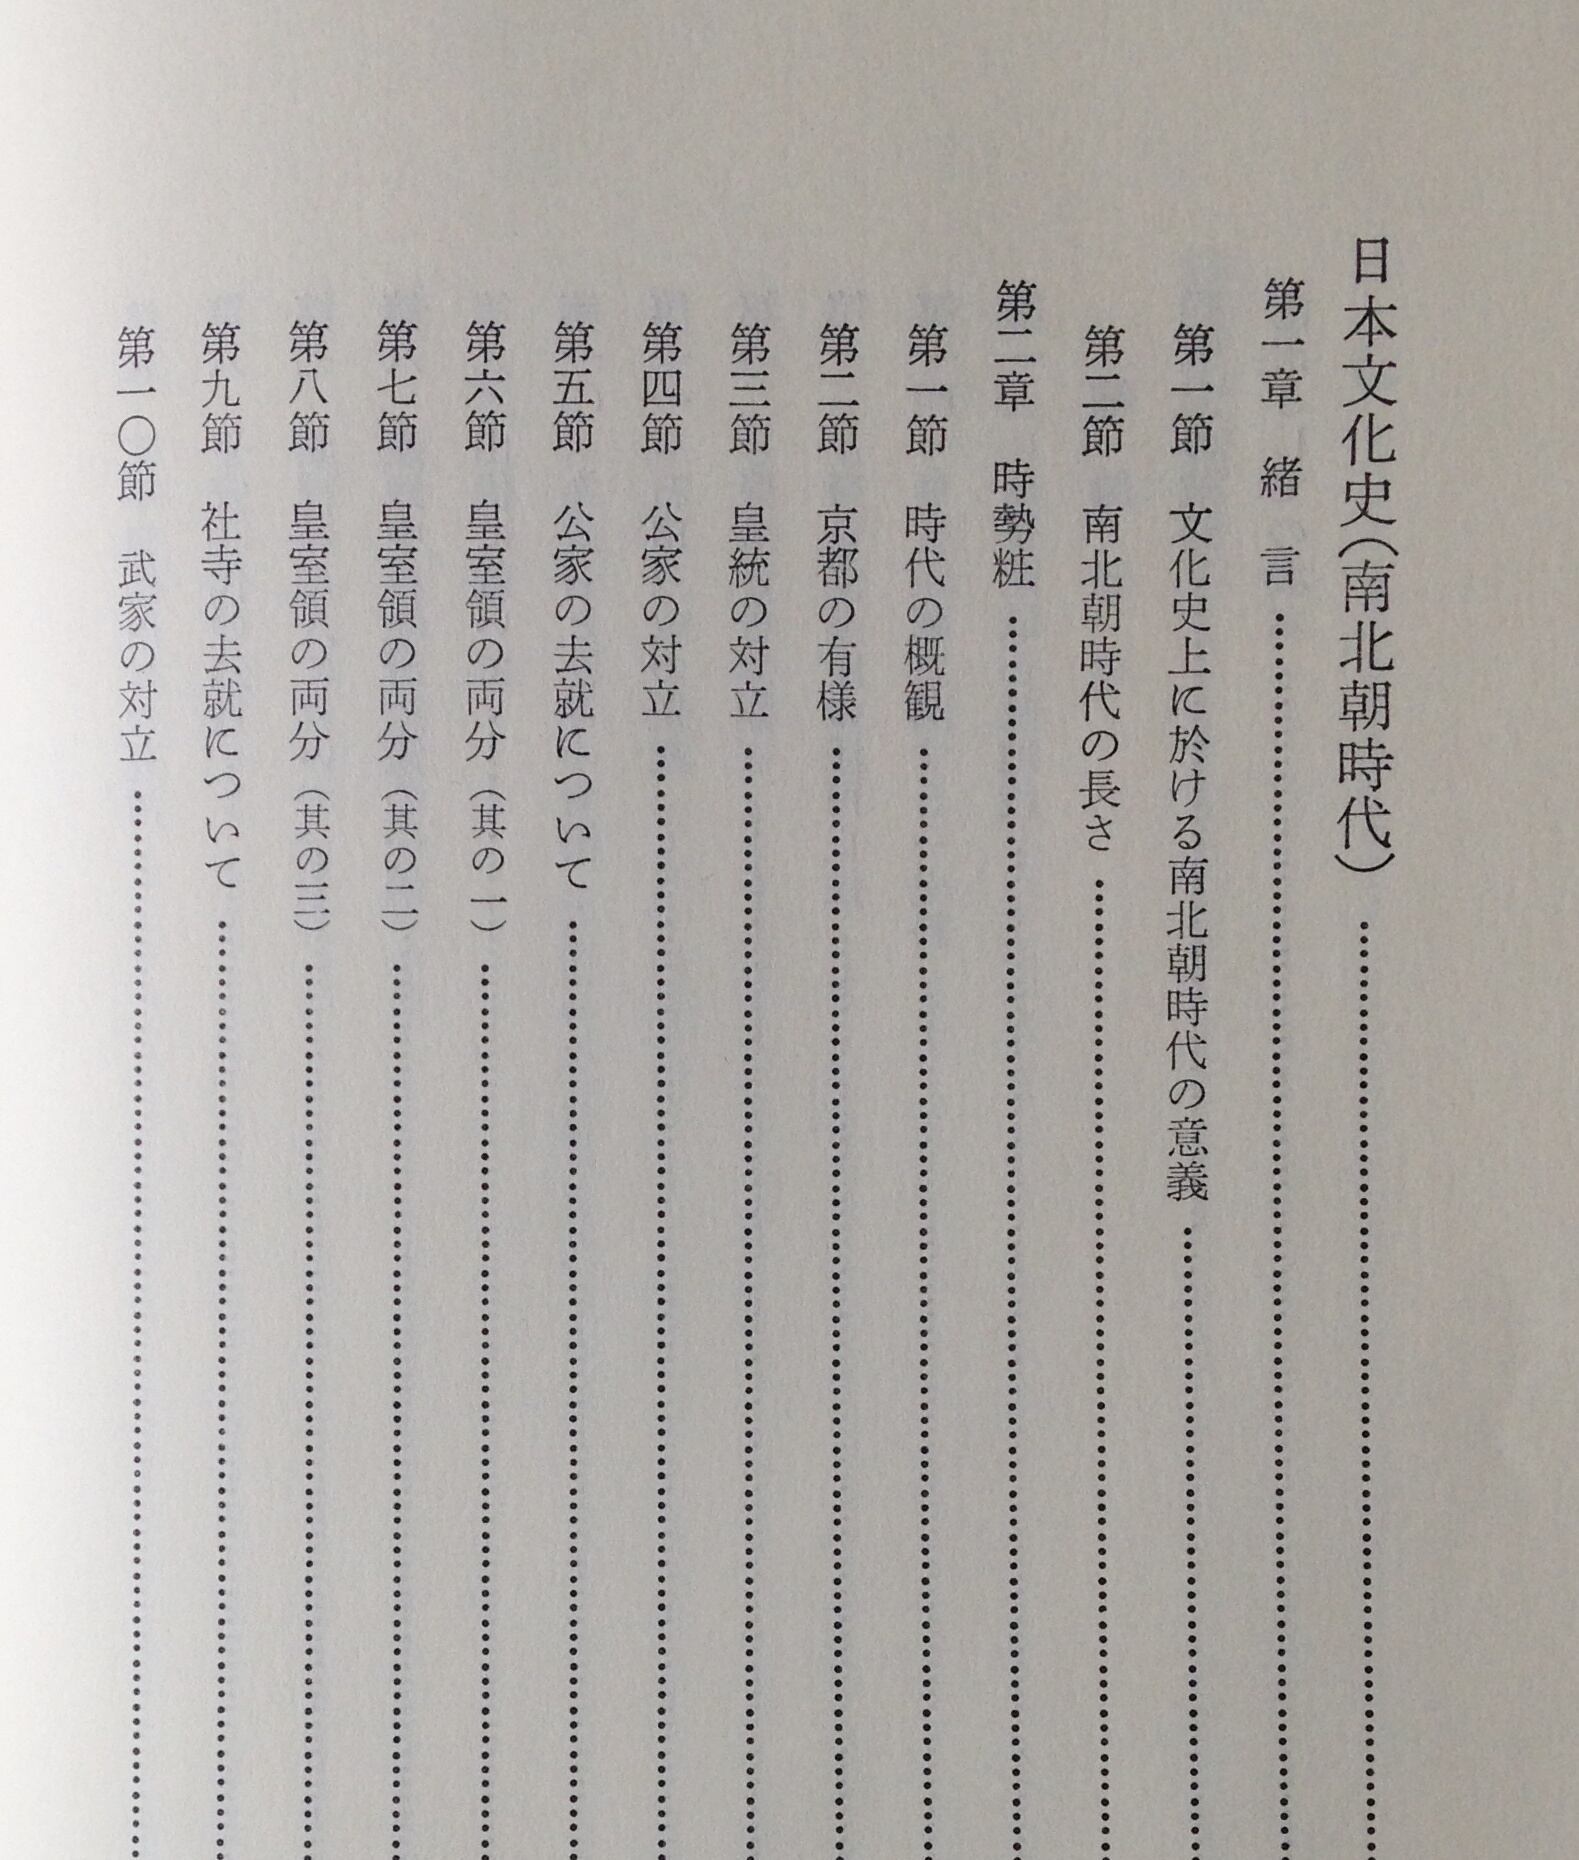 日本文化史(南北朝時代)
第一章 緒言
第一節 文化史上に於ける南北朝時代の意義
第二節 南北朝時代の長さ
第二章 時勢粧
第一節 時代の概観
第二節 京都の有様
第三節 皇統の対立
第四節 公家の対立
第五節 公家の去就について
第六節 皇室領の両分(其の一)
第七節 皇室領の両分(其の二)
第八節 皇室領の両分(其の三)
第九節 社寺の去就について
第一〇節 武家の対立